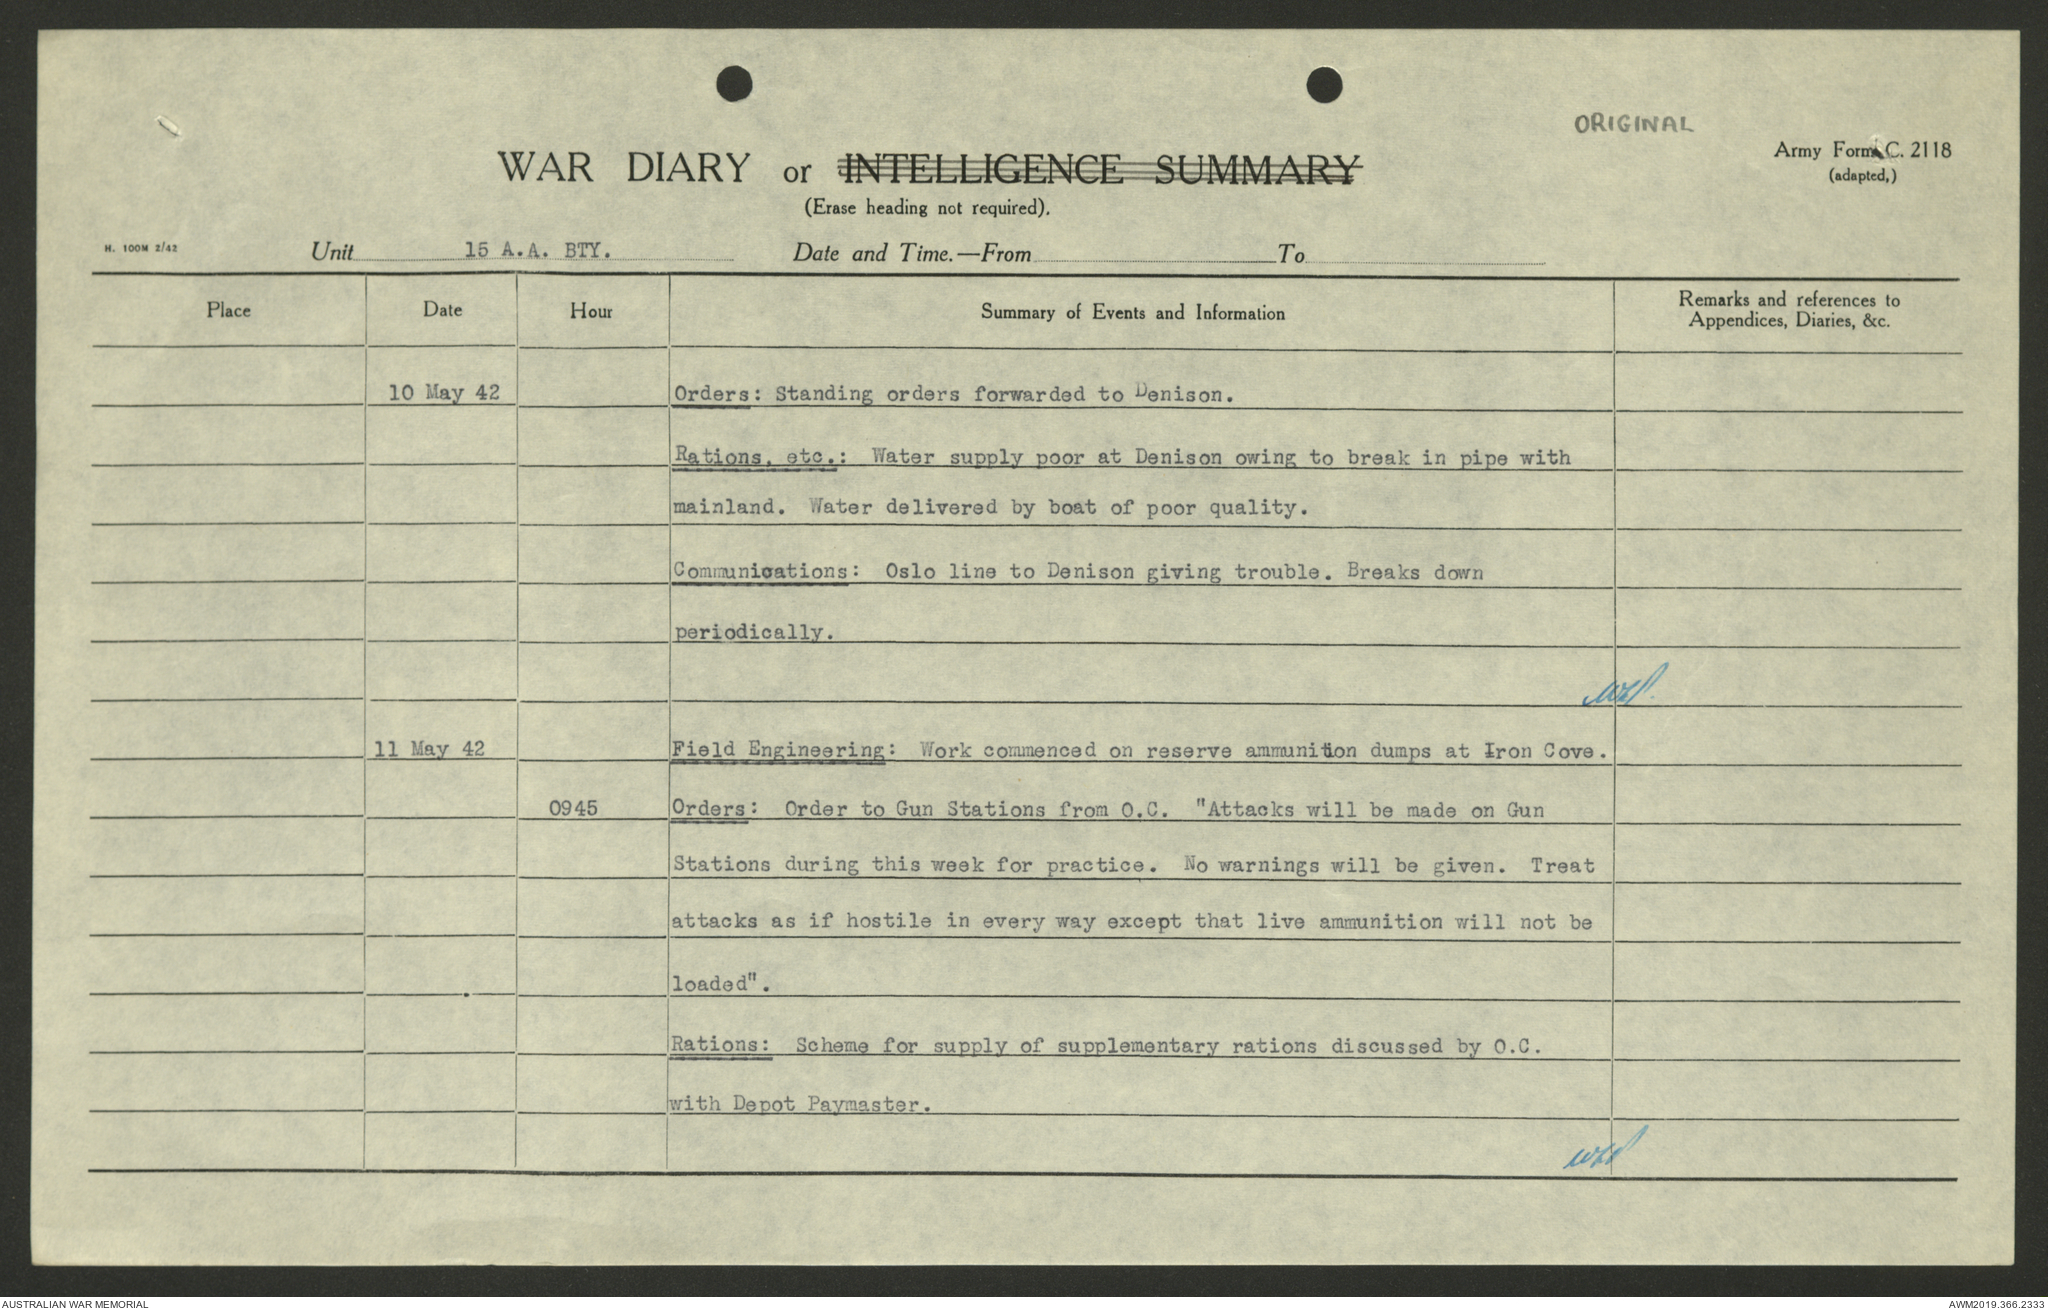 ORIGINAL
Army Form C. 2118
(adapted,)
WAR DIARY or INTELLIGENCE SUMMARY
(Erase heading not required).
H. 100M 2/42
Unit 15 A.A. BTY. Date and Time.—From To
Place Date Hour Summary of Events and Information Remarks and references to Appendices, Diaries, &c.
10 May 42 Orders: Standing orders forwarded to Denison.
Rations, etc.: Water supply poor at Denison owing to break in pipe with
mainland. Water delivered by boat of poor quality.
Communications: Oslo line to Denison giving trouble. Breaks down
periodically.
11 May 42 Field Engineering: Work commenced on reserve ammunition dumps at Iron Cove.
0945 Orders: Order to Gun Stations from O.C. "Attacks will be made on Gun
Stations during this week for practice. No warnings will be given. Treat
attacks as if hostile in every way except that live ammunition will not be
loaded".
Rations: Scheme for supply of supplementary rations discussed by O.C.
with Depot Paymaster.
AUSTRALIAN WAR MEMORIAL
AWM2019.366.2333